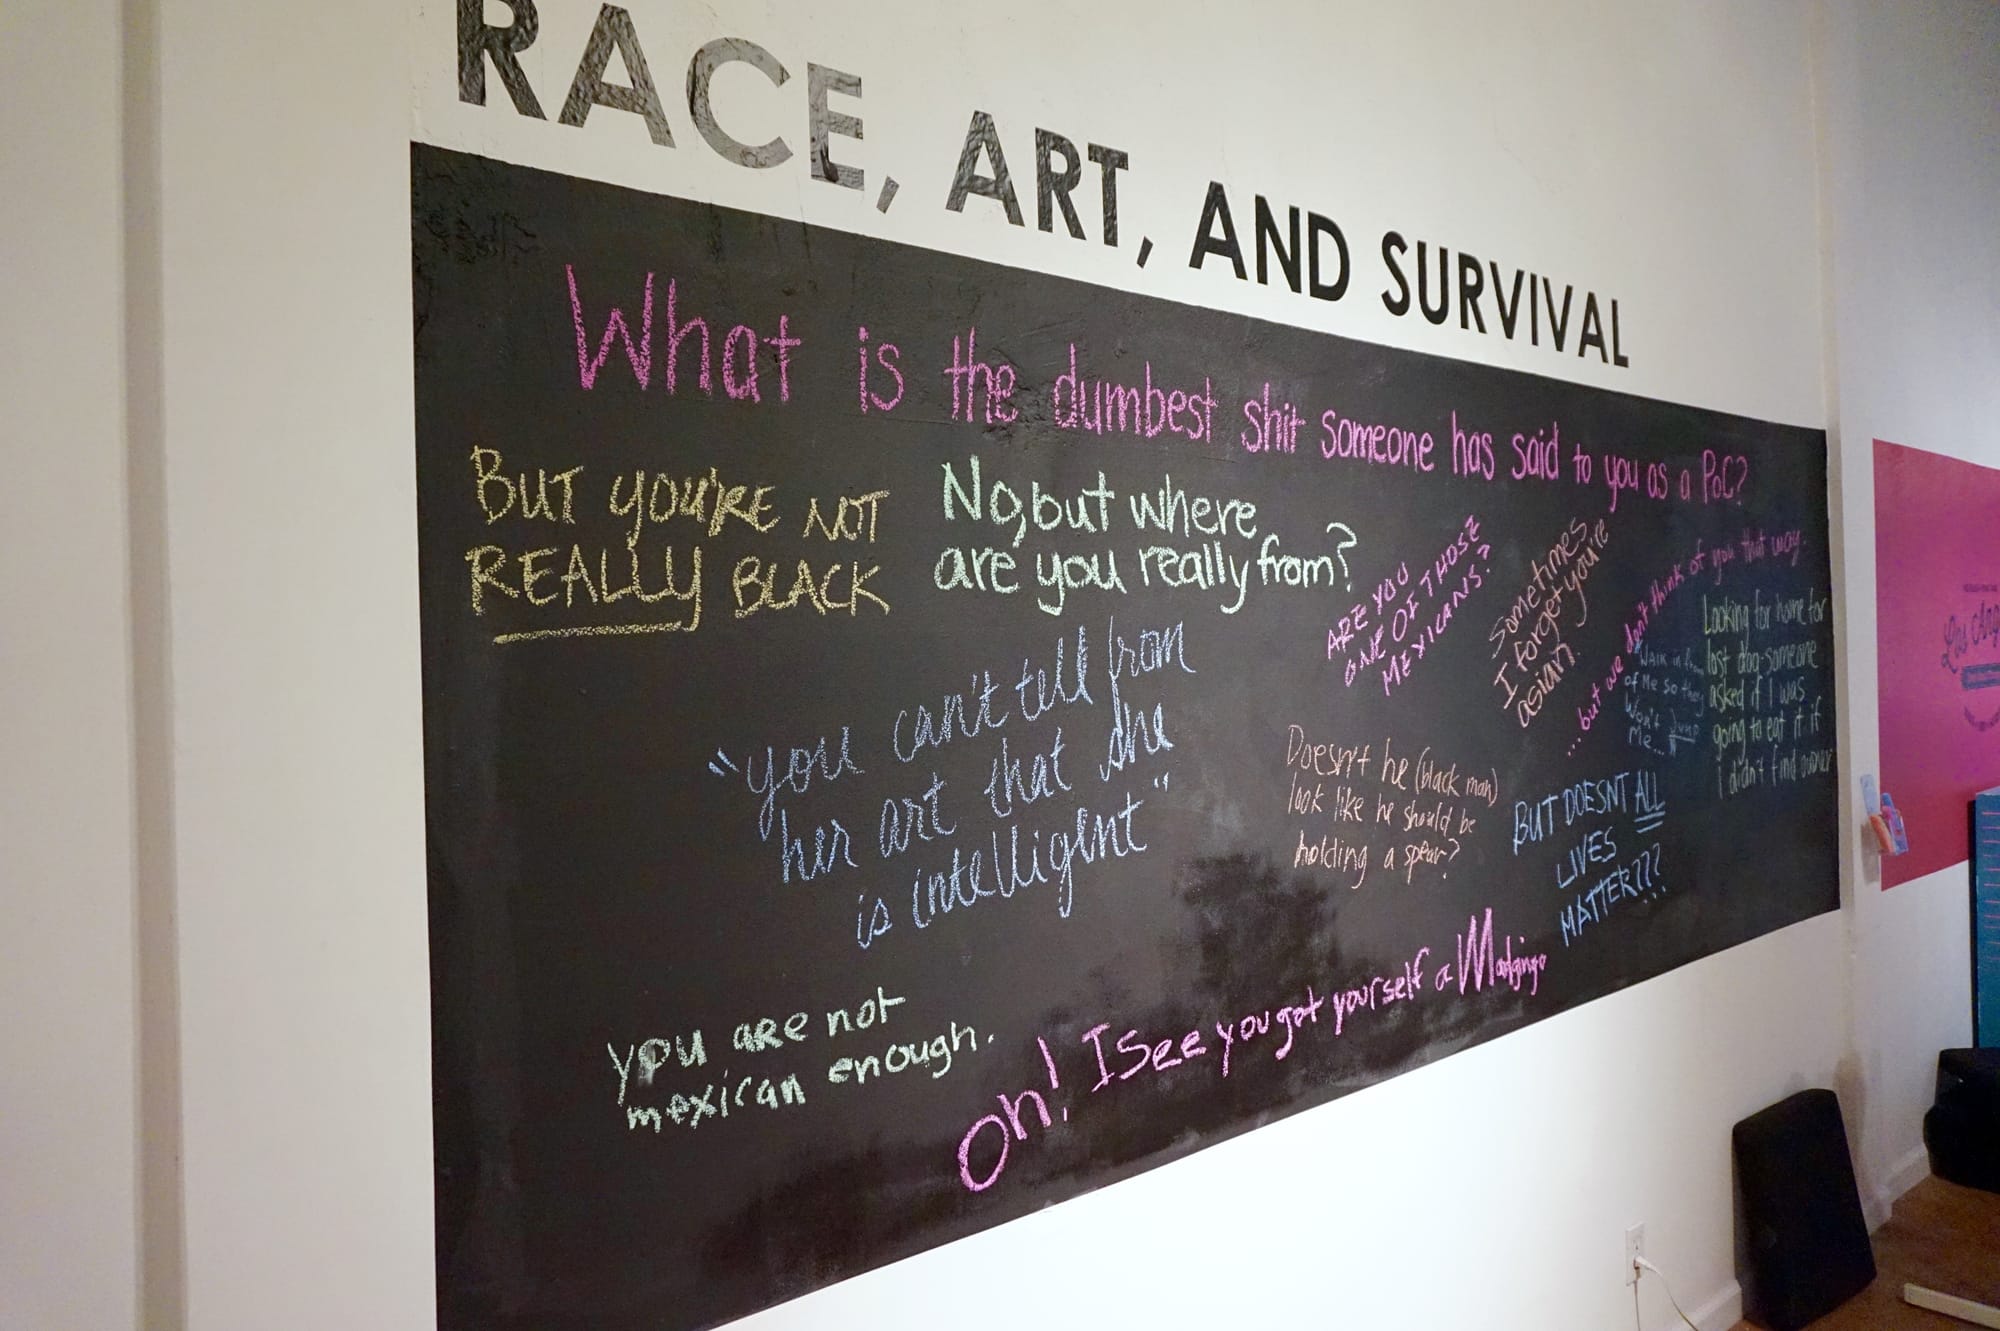 RACE, ART, AND SURVIVAL
What is the dumbest shit someone has said to you as a PoC?
BUT YOU'RE NOT
REALLY BLACK
No, but where
are you really from?
ARE YOU
ONE OF THOSE
MEXICANS?
Sometimes
I forget you're
asian
...but we don't think of you that way.
WALK in
of Me so they
Won't Jump
Me...
Looking for home for
lost dog-someone
asked if I was
going to eat it if
i didn't find owner
"you can't tell from
her art that she
is intelligent"
Doesn't he (black man)
look like he should be
holding a spear?
BUT DOESNT ALL
LIVES
MATTER???
you are not
mexican enough.
Oh! I See you got yourself a Madgingo
Los